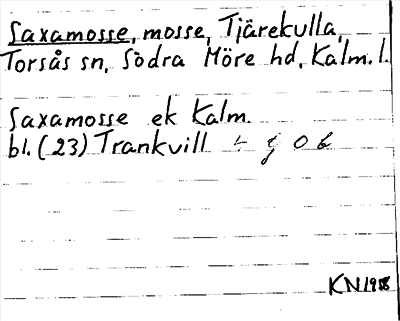 Saxamosse, mosse, Tjärekulla,
Torsås sn, Södra Möre hd, Kalm. l.
Saxamosse ek Kalm.
bl. (23) Trankvill
KN 1988